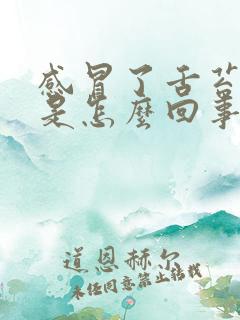 感冒了舌苔
是怎麼回事
道恩赫尔
未经同意禁止转载